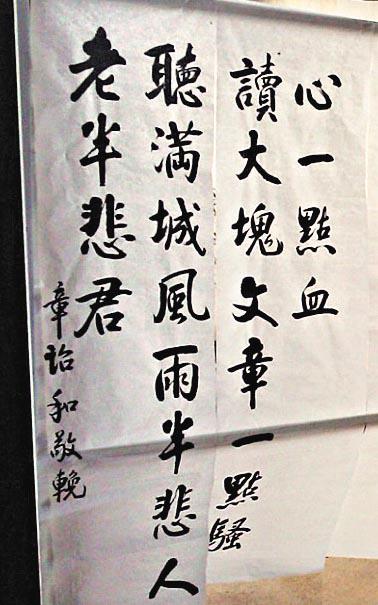 讀大塊文章一點騷
心一點血
聽滿城風雨半悲人
老半悲君
章詒和敬輓